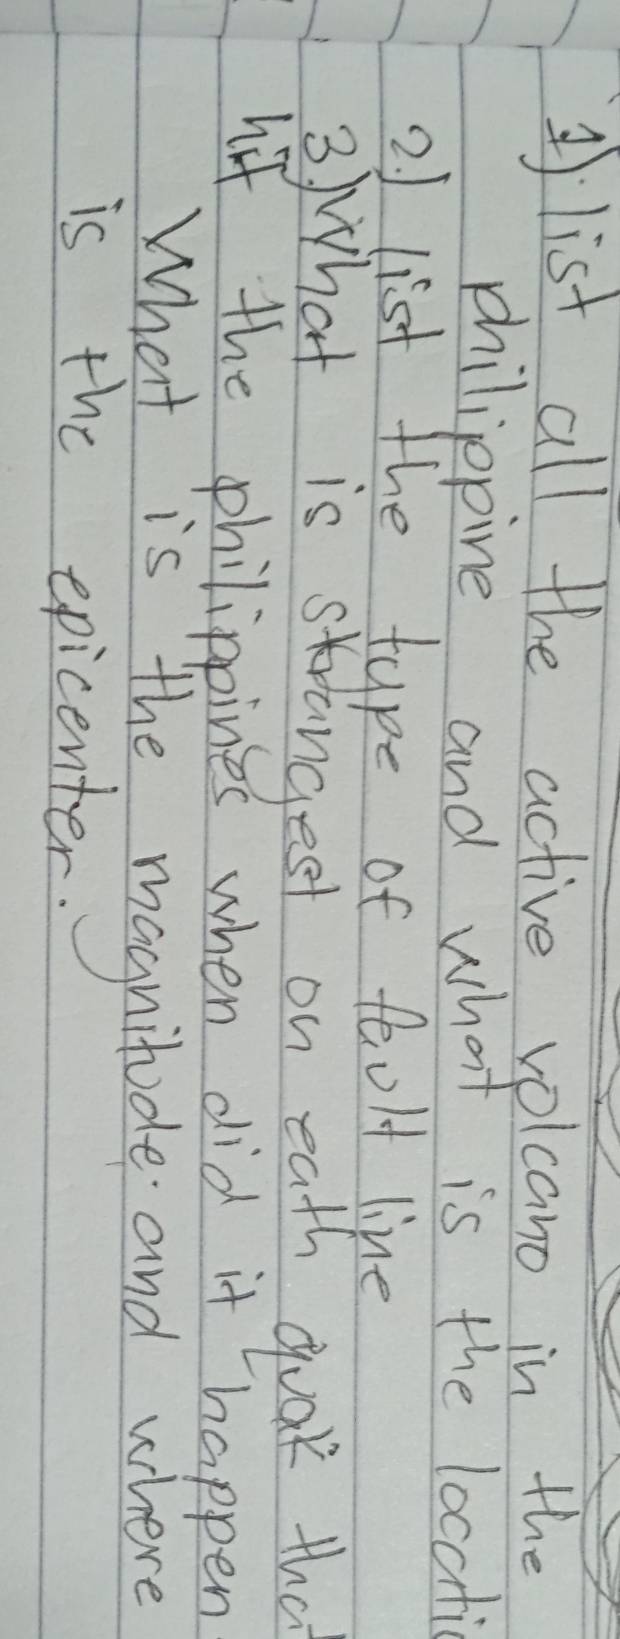 1.) list all the active volcano in the
philippine and what is the locatio
2.) list the type of fault line
3.) What is strangest on eath quak that
hit the philippines when did it happen
What is the magnitude. and where
is the epicenter.